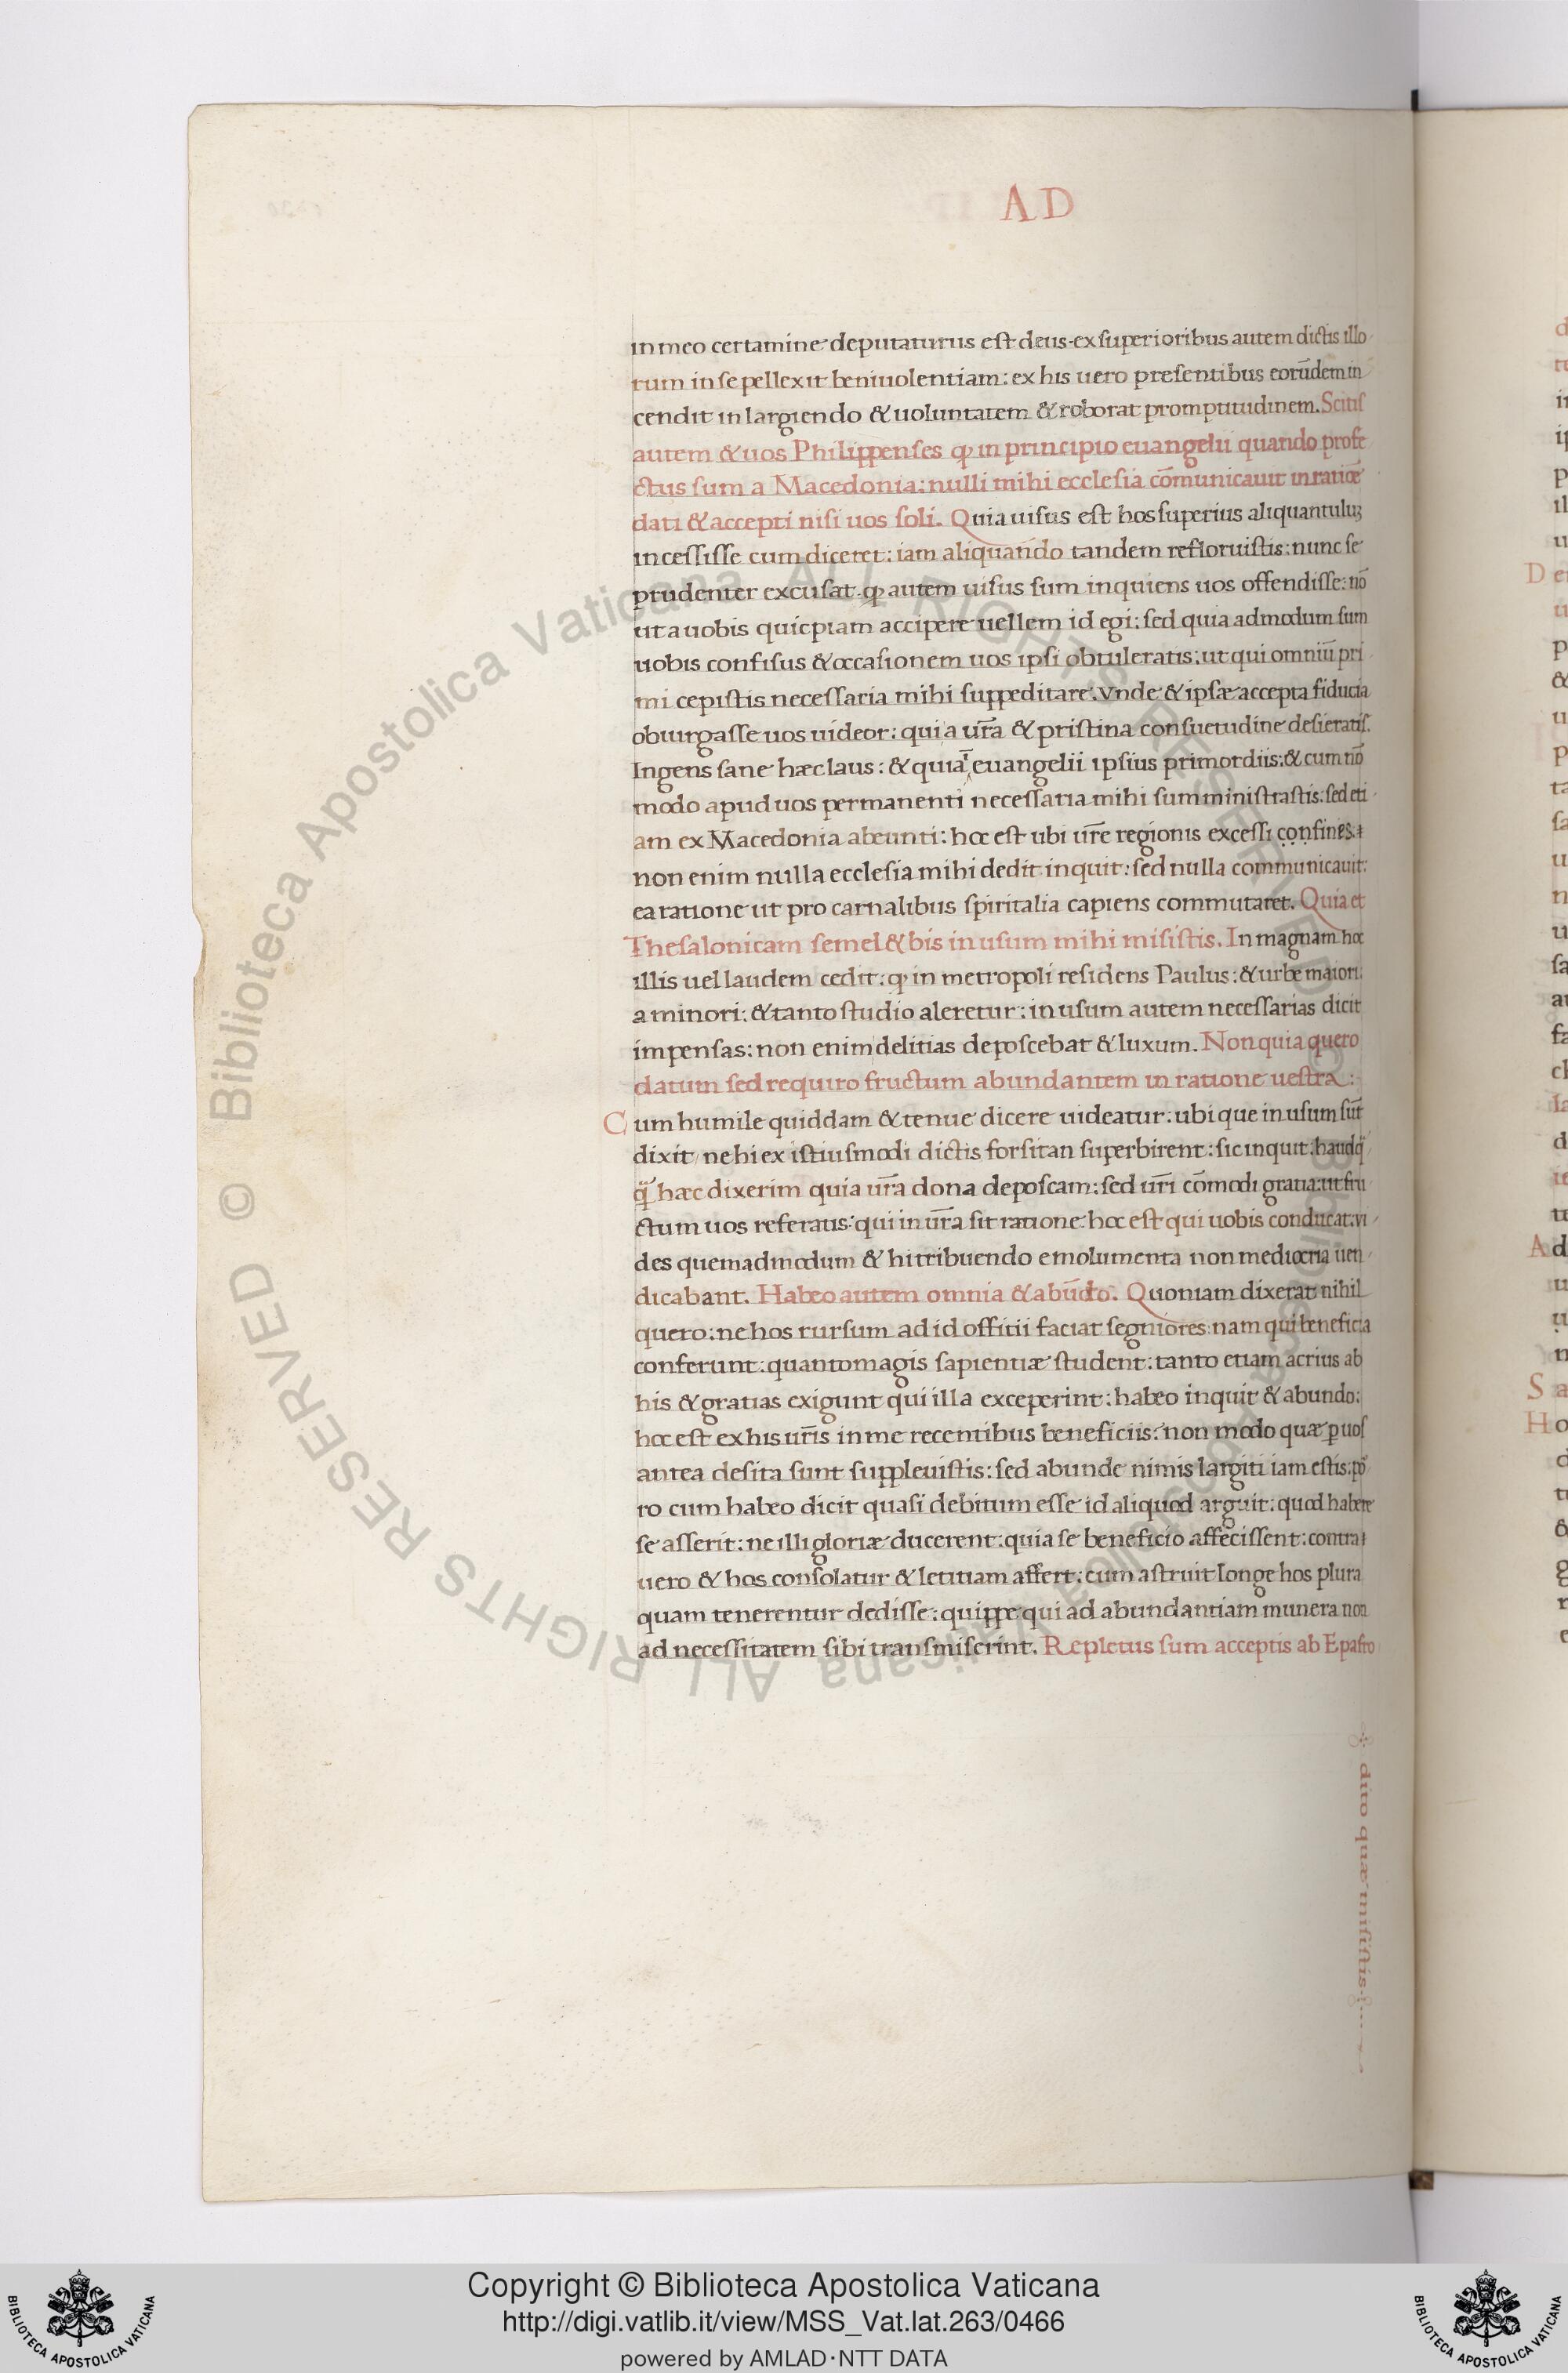 AD
in meo certamine deputaturus est deus. ex superioribus autem dictis illo
rum in se pellexit beniuolentiam: ex his uero presentibus eorūdem in
cendit in largiendo & uoluntatem & roborat promptitudinem. Scitis
autem & uos Philippenses ꝙ in principio euangelii quando profe
ctus sum a Macedonia: nulli mihi ecclesia cōmunicauit in ratiōe
dati & accepti nisi uos soli. Quia uisus est hos superius aliquantuluꝫ
incessisse cum diceret: iam aliquando tandem refloruistis: nunc se
prudenter excusat. ꝙ autem uisus sum inquiens uos offendisse: nō
ut a uobis quicpiam accipere uellem id egi: sed quia admodum sum
uobis confisus & occasionem uos ipsi obtuleratis: ut qui omniū pri
mi cepistis necessaria mihi suppeditare. Vnde & ipsæ accepta fiducia
obiurgasse uos uideor: quia ur̄a & pristina consuetudine desieratis.
Ingens sane hæc laus: & quia ī euangelii ipsius primordiis: & cum nō
modo apud uos permanenti necessaria mihi sumministrastis: sed eti
am ex Macedonia abeunti: hoc est ubi ur̄e regionis excessi confines.
non enim nulla ecclesia mihi dedit inquit: sed nulla communicauit:
ea ratione ut pro carnalibus spiritalia capiens commutaret. Quia et
Thesalonicam semel & bis in usum mihi misistis. In magnam hoc
illis uel laudem cedit: ꝙ in metropoli residens Paulus: & urbe maiori
a minori: & tanto studio aleretur: in usum autem necessarias dicit
impensas: non enim delitias deposcebat & luxum. Non quia quero
datum sed requiro fructum abundantem in ratione uestra:
Cum humile quiddam & tenue dicere uideatur: ubique in usum sūt
dixit / ne hi ex istiusmodi dictis forsitan superbirent: sic inquit: haudq̄
q̄ hæc dixerim quia ur̄a dona deposcam: sed ur̄i cōmodi gratia: ut fru
ctum uos referatis: qui in ur̄a sit ratione: hoc est qui uobis conducat: vi
des quemadmodum & hi tribuendo emolumenta non mediocria uen
dicabant. Habeo autem omnia & abūdo. Quoniam dixerat nihil
quero: ne hos rursum ad id offitii faciat segniores: nam qui beneficia
conferunt: quanto magis sapientiæ student: tanto etiam acrius ab
his & gratias exigunt qui illa exceperint: habeo inquit & abundo:
hoc est ex his ur̄is in me recentibus beneficiis: non modo quæ ꝑ uos
antea desita sunt suppleuistis: sed abunde nimis largiti iam estis: po
ro cum habeo dicit quasi debitum esse id aliquod arguit: quod habere
se asserit: ne illi gloriæ ducerent: quia se beneficio affecissent: contra
uero & hos consolatur & letitiam affert: cum astruit longe hos plura
quam tenerentur dedisse: quippe qui ad abundantiam munera non
ad necessitatem sibi transmiserint. Repletus sum acceptis ab Epafro
dito quæ misistis
© Biblioteca Apostolica Vaticana ALL RIGHTS RESERVED © Biblioteca Apostolica Vaticana ALL RIGHTS RESERVED
Copyright © Biblioteca Apostolica Vaticana
http://digi.vatlib.it/view/MSS_Vat.lat.263/0466
powered by AMLAD·NTT DATA
BIBLIOTECA APOSTOLICA VATICANA
BIBLIOTECA APOSTOLICA VATICANA